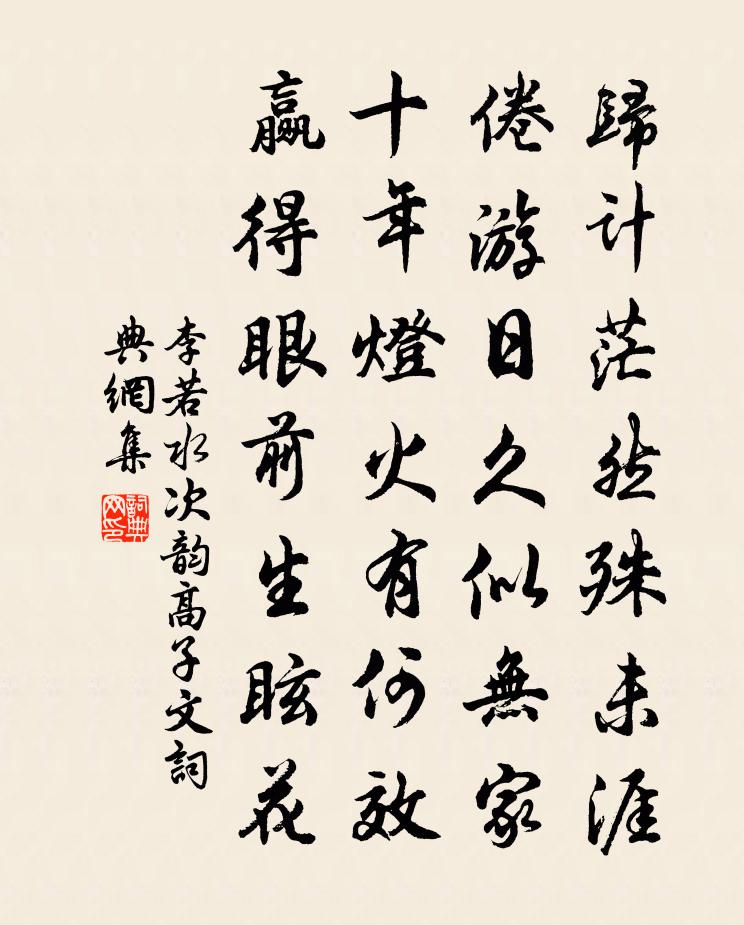 歸計茫然殊未涯
倦游日久似無家
十年燈火有何效
贏得眼前生眩花
李若水次韵高子文詞
典網集
詞典網印